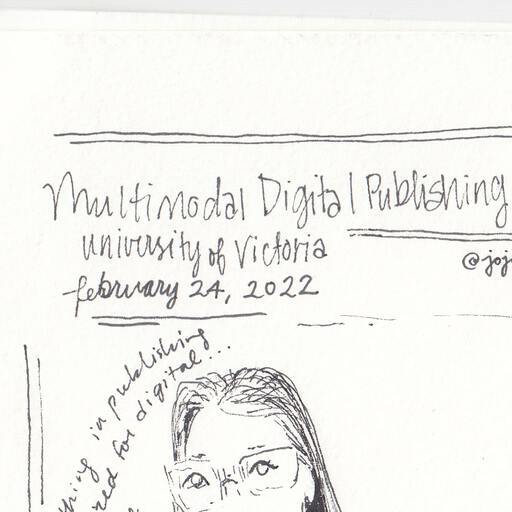 Multimodal Digital Publishing
University of Victoria
february 24, 2022
in publishing
for digital...